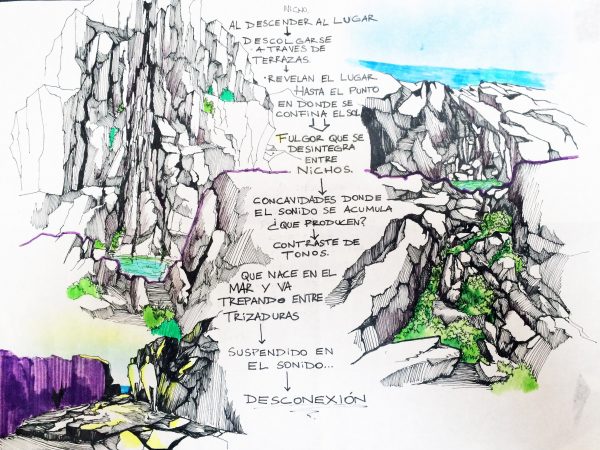 NICHO
AL DESCENDER AL LUGAR
DESCOLGARSE
A TRAVÉS DE
TERRAZAS.
REVELAN EL LUGAR.
HASTA EL PUNTO
EN DONDE SE
CONFINA EL SOL.
FULGOR QUE SE
DESINTEGRA
ENTRE
NICHOS.
CONCAVIDADES DONDE
EL SONIDO SE ACUMULA
¿QUE PRODUCEN?
CONTRASTE DE
TONOS.
QUE NACE EN EL
MAR Y VA
TREPANDO ENTRE
TRIZADURAS
SUSPENDIDO EN
EL SONIDO...
DESCONEXIÓN